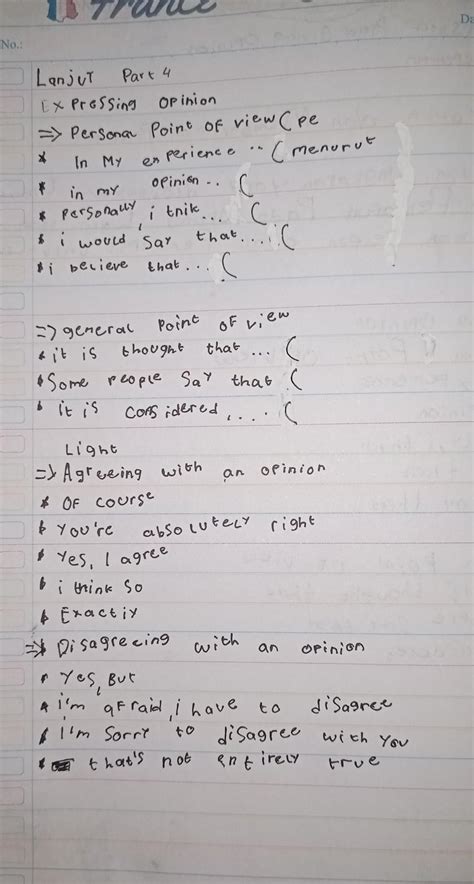 France
No.:
Da
Lanjut Part 4
Expressing opinion
=> Personal Point of view (pe
* In my experience .. (menurut
* in my opinion .. (
* Personally, i tnik... (
* i would say that.... (
* i believe that... (
=> general Point of view
* it is thought that ... (
* Some people say that (
* it is considered, ... (
Light
=> Agreeing with an opinion
* of course
* You're absolutely right
* Yes, I agree
* i think so
* Exactiy
=> Disagreeing with an opinion
* Yes, But
* i'm afraid, i have to disagree
* I'm sorry to disagree with you
* that's not entirely true